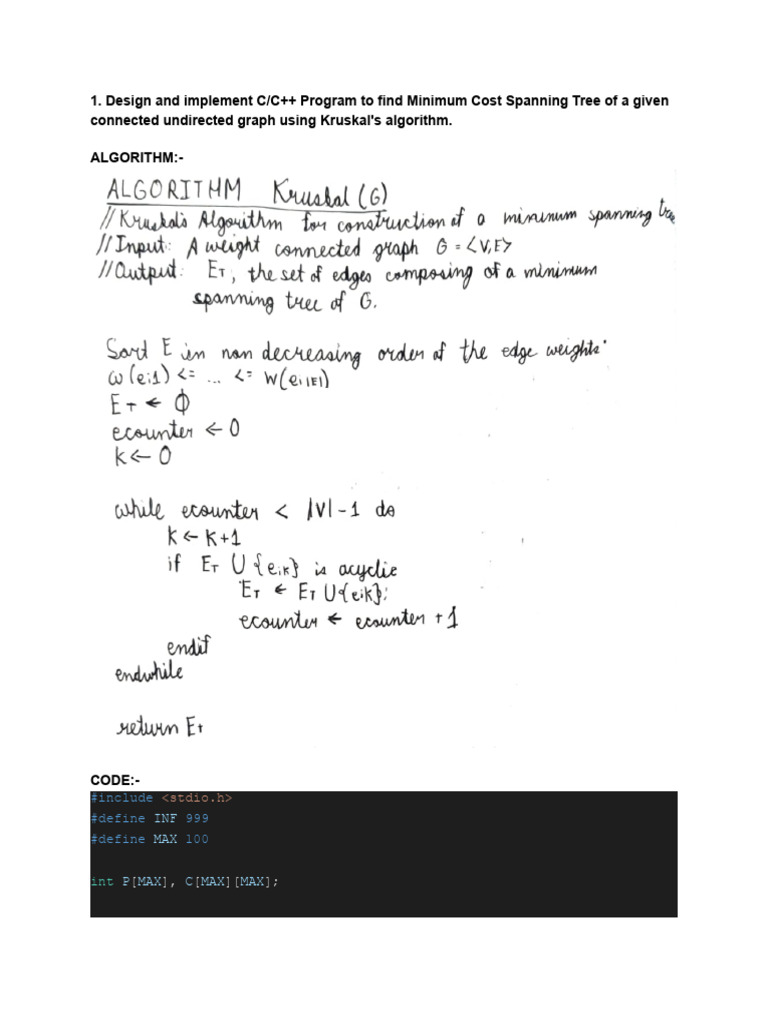 1. Design and implement C/C++ Program to find Minimum Cost Spanning Tree of a given
connected undirected graph using Kruskal's algorithm.
ALGORITHM:-
ALGORITHM Kruskal (G)
// Kruskal's Algorithm for construction of a minimum spanning tree
// Input: A weight connected graph G = <V,E>
// Output: ET, the set of edges composing of a minimum
spanning tree of G.
Sort E in non decreasing order of the edge weights
w(ei1) <= ... <= w(ei|E|)
ET ← Φ
ecounter ← 0
k ← 0
while ecounter < |V| - 1 do
k ← k+1
if ET U {eik} is acyclic
ET ← ET U {eik};
ecounter ← ecounter + 1
endif
endwhile
return ET
CODE:-
#include <stdio.h>
#define INF 999
#define MAX 100
int P[MAX], C[MAX][MAX];